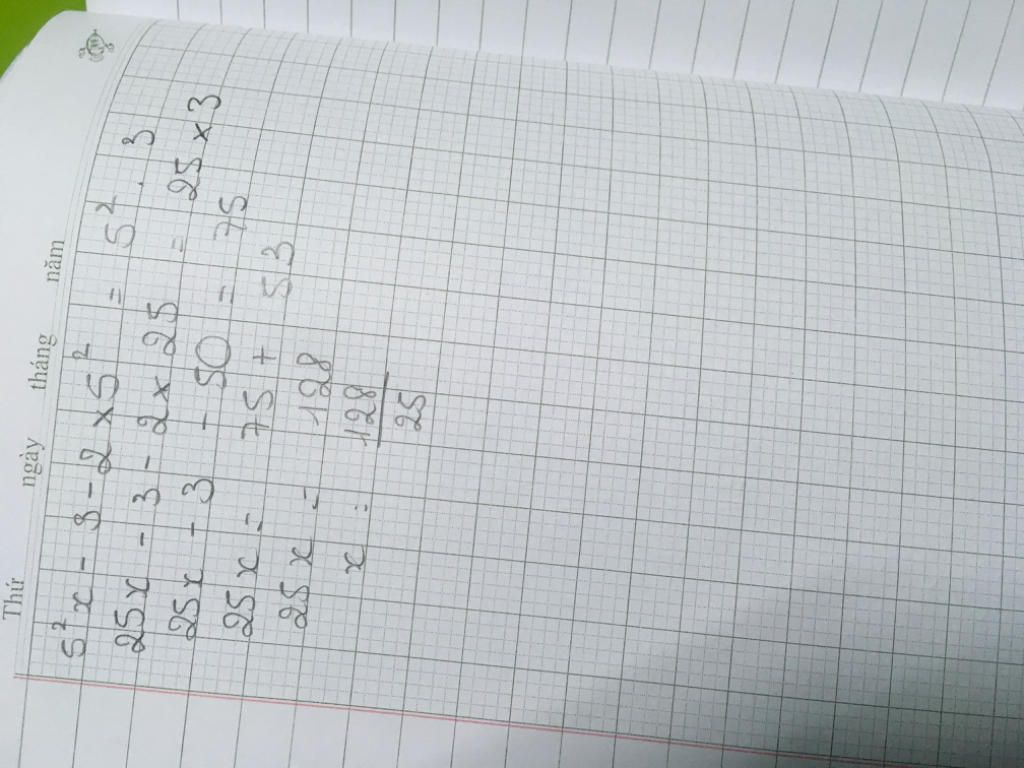 Thứ ngày tháng năm
5²x - 3 - 2 × 5² = 5² . 3
25x - 3 - 2 × 25 = 25 × 3
25x - 3 - 50 = 75
25x = 75 + 53
25x = 128
x = 128/25